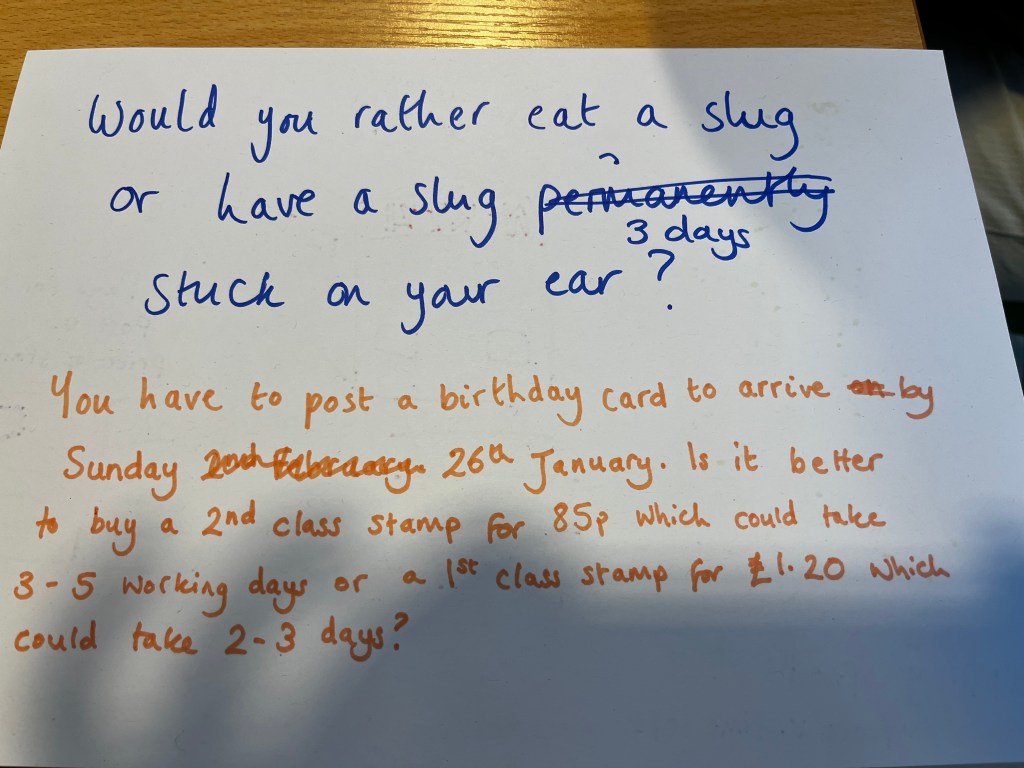 Would you rather eat a slug
or have a slug permanently
3 days
stuck on your ear?
You have to post a birthday card to arrive on by
Sunday 20th February. 26th January. Is it better
to buy a 2nd class stamp for 85p which could take
3-5 working days or a 1st class stamp for £1.20 which
could take 2-3 days?